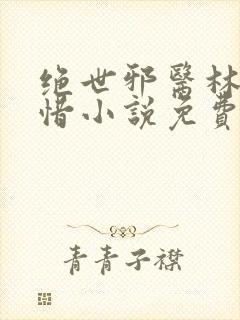 绝世邪醫林
惜小說免費
青青子襟